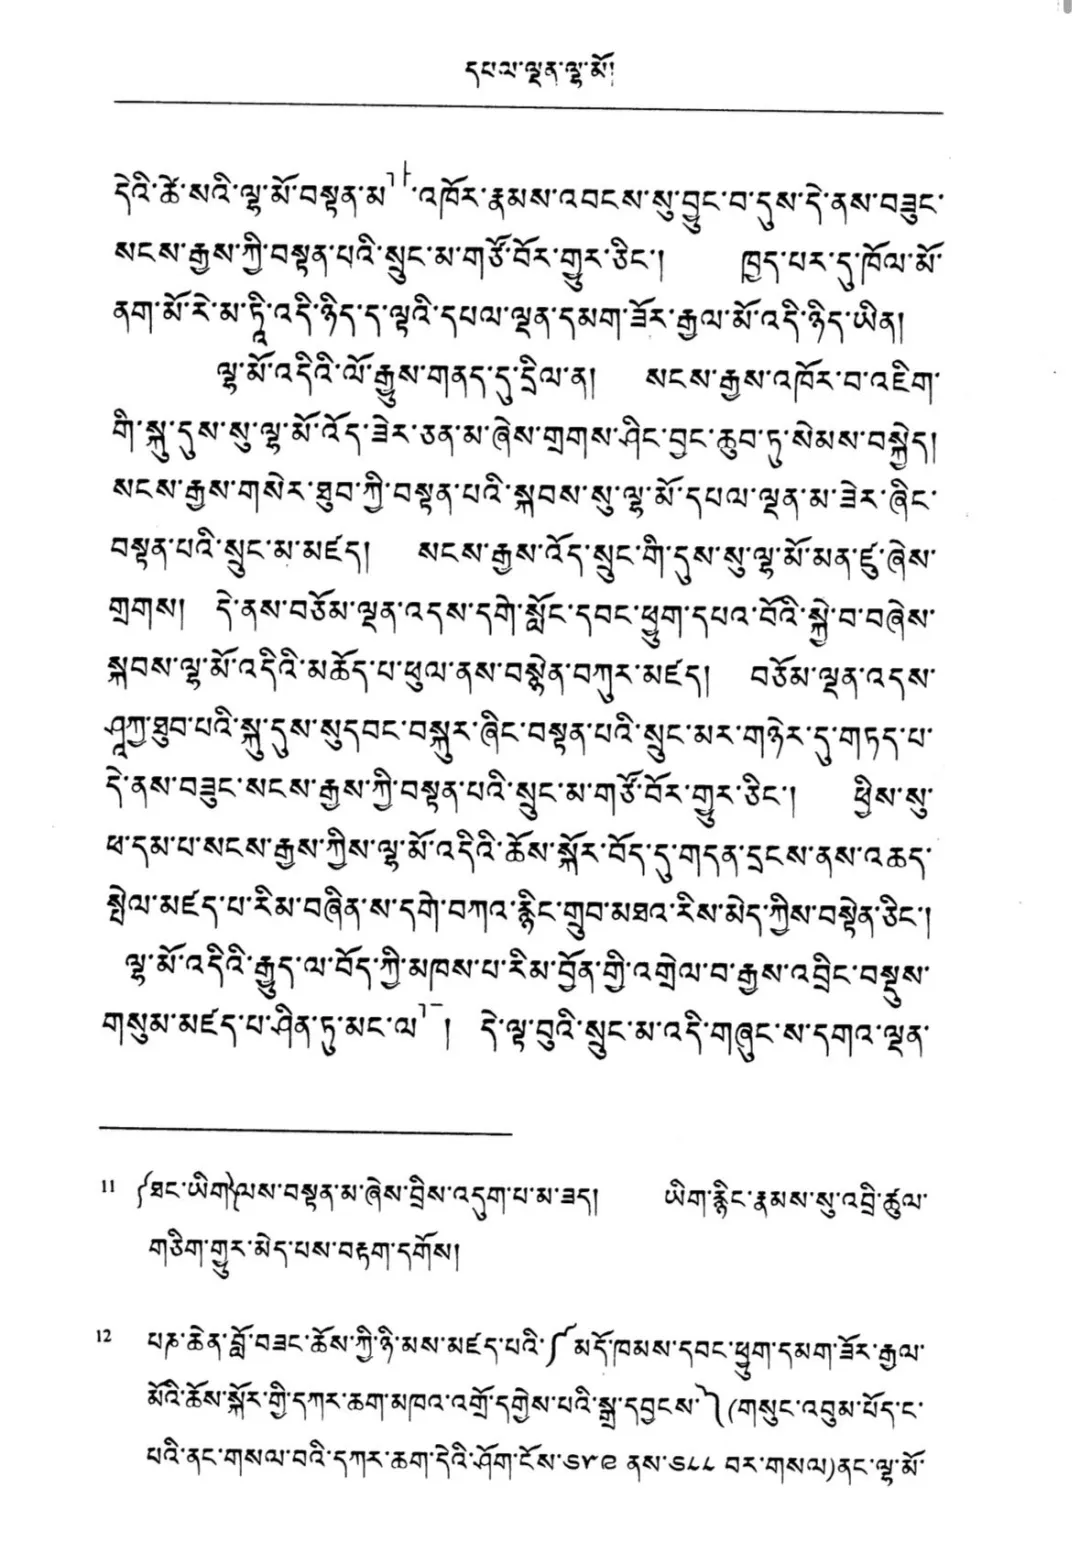 དཔལ་ལྡན་ལྷ་མོ།
དེའི་ཚེ་སའི་ལྷ་མོ་བསྟན་མ་༡༡་འཁོར་རྣམས་འབངས་སུ་བྱུང་བ་དུས་དེ་ནས་བཟུང་
སངས་རྒྱས་ཀྱི་བསྟན་པའི་སྲུང་མ་གཙོ་བོར་གྱུར་ཅིང་། ཁྱད་པར་དུ་ཁོལ་མོ་
ནག་མོ་རེ་མ་ཏཱི་འདི་ཉིད་ད་ལྟའི་དཔལ་ལྡན་དམག་ཟོར་རྒྱལ་མོ་འདི་ཉིད་ཡིན།
ལྷ་མོ་འདིའི་ལོ་རྒྱུས་གནད་དུ་དྲིལ་ན། སངས་རྒྱས་འཁོར་བ་འཇིག་
གི་སྐུ་དུས་སུ་ལྷ་མོ་འོད་ཟེར་ཅན་མ་ཞེས་གྲགས་ཤིང་བྱང་ཆུབ་ཏུ་སེམས་བསྐྱེད།
སངས་རྒྱས་གསེར་ཐུབ་ཀྱི་བསྟན་པའི་སྐབས་སུ་ལྷ་མོ་དཔལ་ལྡན་མ་ཟེར་ཞིང་
བསྟན་པའི་སྲུང་མ་མཛད། སངས་རྒྱས་འོད་སྲུང་གི་དུས་སུ་ལྷ་མོ་མན་ཛུ་ཞེས་
གྲགས། དེ་ནས་བཅོམ་ལྡན་འདས་དགེ་སློང་དབང་ཕྱུག་དཔའ་བོའི་སྐྱེ་བ་བཞེས་
སྐབས་ལྷ་མོ་འདིའི་མཆོད་པ་ཕུལ་ནས་བསྙེན་བཀུར་མཛད། བཅོམ་ལྡན་འདས་
ཤཱཀྱ་ཐུབ་པའི་སྐུ་དུས་སུདབང་བསྐུར་ཞིང་བསྟན་པའི་སྲུང་མར་གཉེར་དུ་གཏད་པ་
དེ་ནས་བཟུང་སངས་རྒྱས་ཀྱི་བསྟན་པའི་སྲུང་མ་གཙོ་བོར་གྱུར་ཅིང་། ཕྱིས་སུ་
ཕ་དམ་པ་སངས་རྒྱས་ཀྱིས་ལྷ་མོ་འདིའི་ཆོས་སྐོར་བོད་དུ་གདན་དྲངས་ནས་འཆད་
སྤེལ་མཛད་པ་རིམ་བཞིན་ས་དགེ་བཀའ་རྙིང་གྲུབ་མཐའ་རིས་མེད་ཀྱིས་བསྟེན་ཅིང་།
ལྷ་མོ་འདིའི་རྒྱུད་ལ་བོད་ཀྱི་མཁས་པ་རིམ་བྱོན་གྱི་འགྲེལ་བ་རྒྱས་འབྲིང་བསྡུས་
གསུམ་མཛད་པ་ཤིན་ཏུ་མང་ལ་༡༢། དེ་ལྟ་བུའི་སྲུང་མ་འདི་གཞུང་ས་དགའ་ལྡན་
11 ༼ཐང་ཡིག༽ལས་བསྟན་མ་ཞེས་བྲིས་འདུག་པ་མ་ཟད། ཡིག་རྙིང་རྣམས་སུ་འབྲི་ཚུལ་
གཅིག་གྱུར་མེད་པས་བརྟག་དགོས།
12 པཎ་ཆེན་བློ་བཟང་ཆོས་ཀྱི་ཉི་མས་མཛད་པའི་༼ མདོ་ཁམས་དབང་ཕྱུག་དམག་ཟོར་རྒྱལ་
མོའི་ཆོས་སྐོར་གྱི་དཀར་ཆག་མཁའ་འགྲོ་དགྱེས་པའི་སྒྲ་དབྱངས་༽(གསུང་འབུམ་པོད་ང་
པའི་ནང་གསལ་བའི་དཀར་ཆག་དེའི་ཤོག་ངོས་༦༥༩ ནས་༦༨༨ བར་གསལ)ནང་ལྷ་མོ་